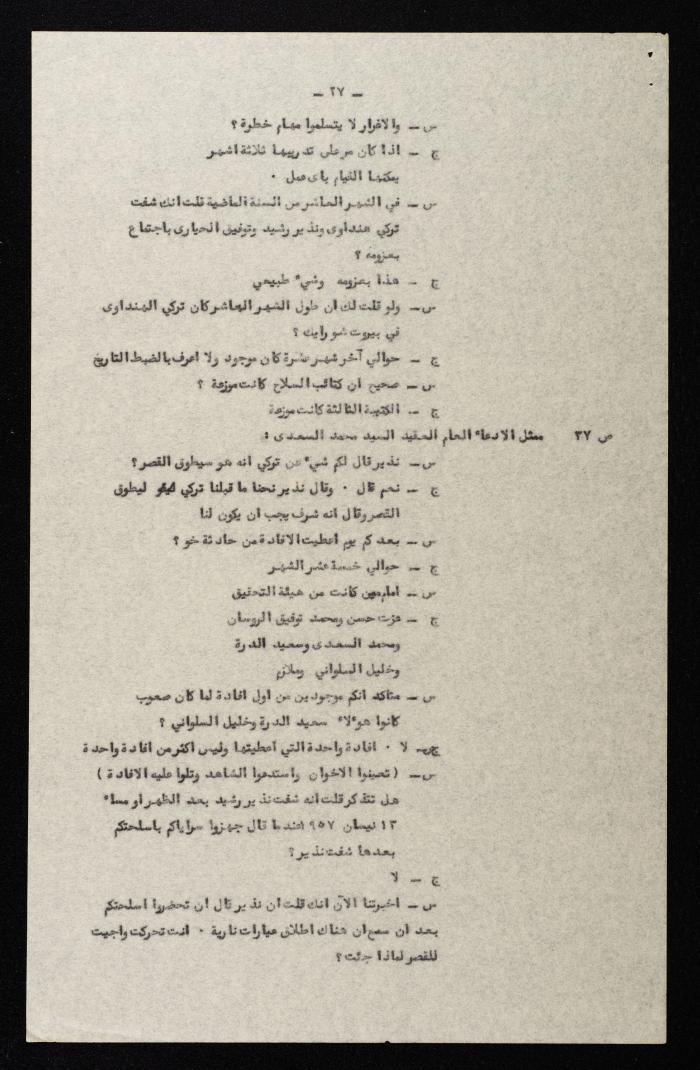 ـ ٢٧ ـ
س ـ والاغرار لا يتسلموا مهام خطرة ؟
ج ـ اذا كان مرعلى تدريبها ثلاثة اشهر
يمكنها القيام باى عمل ٠
س ـ في الشهر العاشر من السنة الماضية قلت انك شفت
تركي هنداوى ونذير رشيد وتوفيق الحيارى باجتماع
بعزومه ؟
ج ـ هذا بعزومه وشيء طبيعي
س ـ ولو قلت لك ان طول الشهر العاشر كان تركي الهنداوى
في بيروت شو رايك ؟
ج ـ حوالي آخر شهر عشرة كان موجود ولا اعرف بالضبط التاريخ
س ـ صحيح ان كتائب السلاح كانت موزعة ؟
ج ـ الكتيبة الثالثة كانت موزعة
ص ٣٧ ممثل الادعاء العام العقيد السيد محمد السعدى :
س ـ نذير قال لكم شيء عن تركي انه هو سيطوق القصر ؟
ج ـ نعم قال ٠ وقال نذير نحنا ما قبلنا تركي ليطوق
القصر وقال انه شرف يجب ان يكون لنا
س ـ بعد كم يوم اعطيت الافادة من حادثة خو ؟
ج ـ حوالي خمسة عشر الشهر
س ـ امام مين كانت من هيئة التحقيق
ج ـ عزت حسن ومحمد توفيق الروسان
ومحمد السعدى وسعيد الدرة
وخليل السلواني وملازم
س ـ متاكد انكم موجودين من اول افادة لما كان صعوب
كانوا هوءلاء سعيد الدرة وخليل السلواني ؟
ج ـ لا ٠ افادة واحدة التي اعطيتها وليس اكثر من افادة واحدة
س ـ ( تصيفوا الاخوان واستدعوا الشاهد وتلوا عليه الافادة )
هل تتذكر قلت انه شفت نذير رشيد بعد الظهر او مساء
١٣ نيسان ١٩٥٧ عندما قال جهزوا سراياكم باسلحتكم
بعدها شفت نذير ؟
ج ـ لا
س ـ اخبرتنا الآن انك قلت ان نذير قال ان تحضروا اسلحتكم
بعد ان سمع ان هناك اطلاق عيارات نارية ٠ انت تحركت واجيت
للقصر لماذا جئت ؟